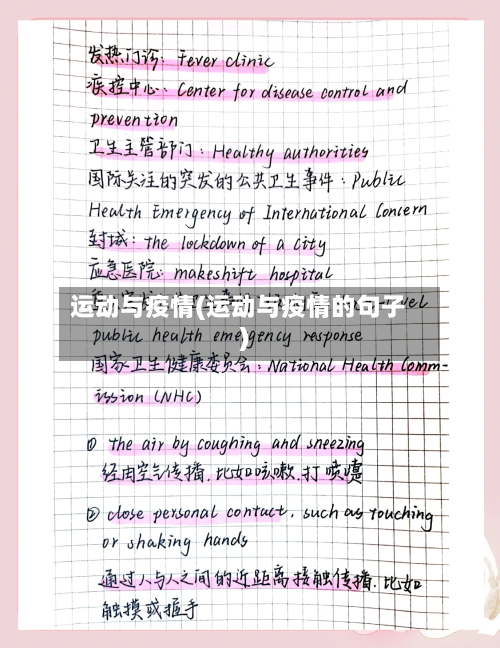 发热门诊: Fever clinic
疾控中心: Center for disease control and
prevention
卫生主管部门: Healthy authorities
国际关注的突发的公共卫生事件: Public
Health Emergency of International Concern
封城: the lockdown of a city
应急医院: makeshift hospital
运动与疫情(运动与疫情的句子
)
public health emergency response
国家卫生健康委员会: National Health Comm-
ission (NHC)
① the air by coughing and sneezing
经由空气传播, 比如咳嗽, 打喷嚏
② close personal contact, such as touching
or shaking hands
通过人与人之间的近距离接触传播, 比如
触摸或握手